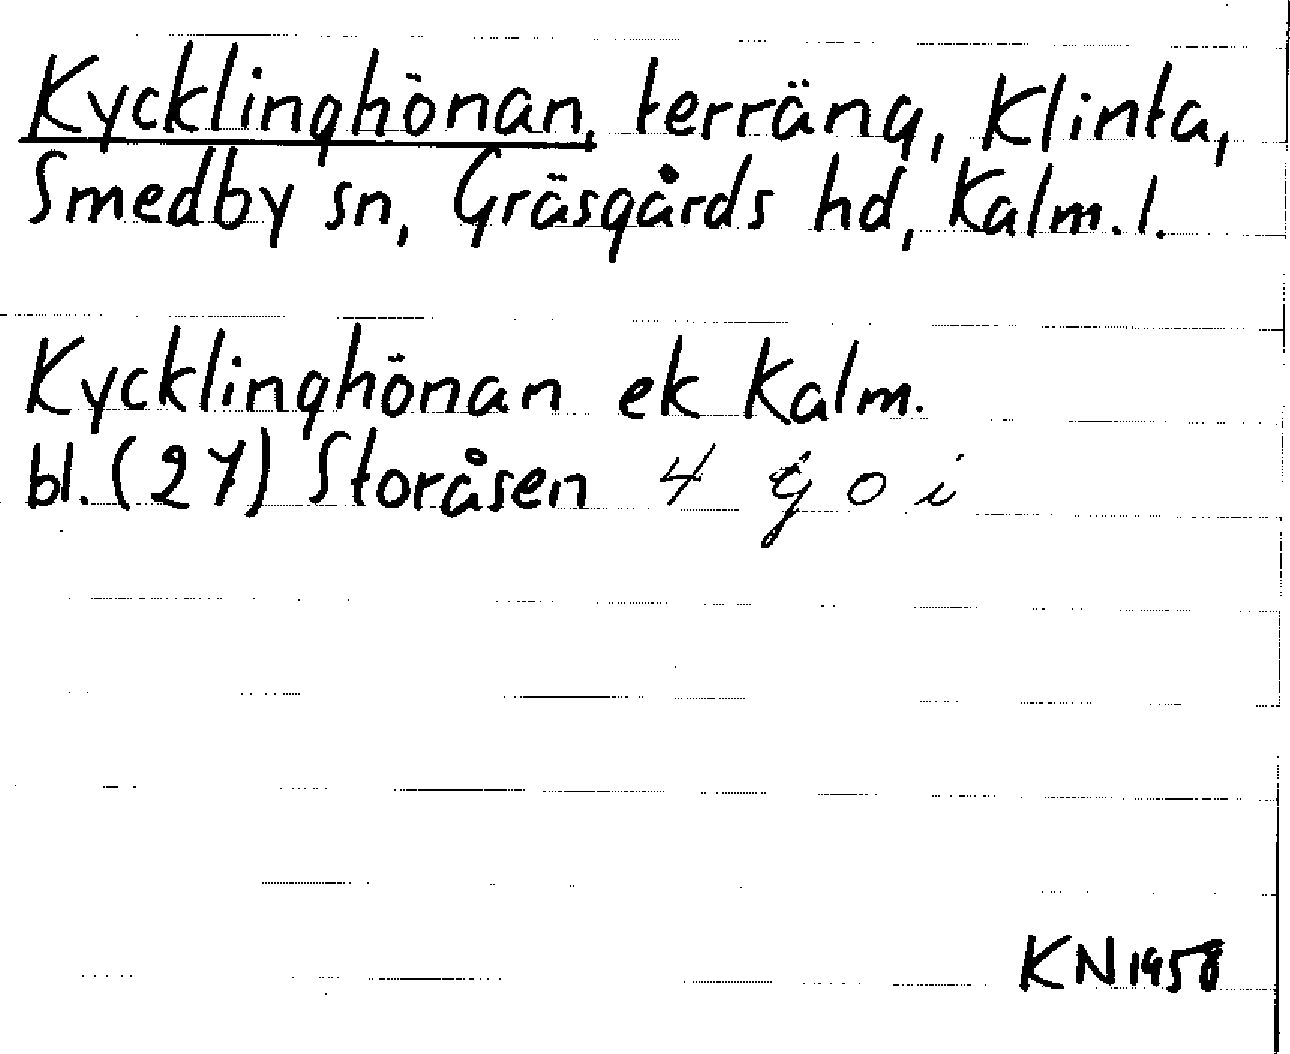 Kycklinghönan, terräng, Klinta,
Smedby sn, Gräsgårds hd, Kalm. l.
Kycklinghönan ek Kalm.
bl. (27) Storåsen 4 G o i
KN 1958